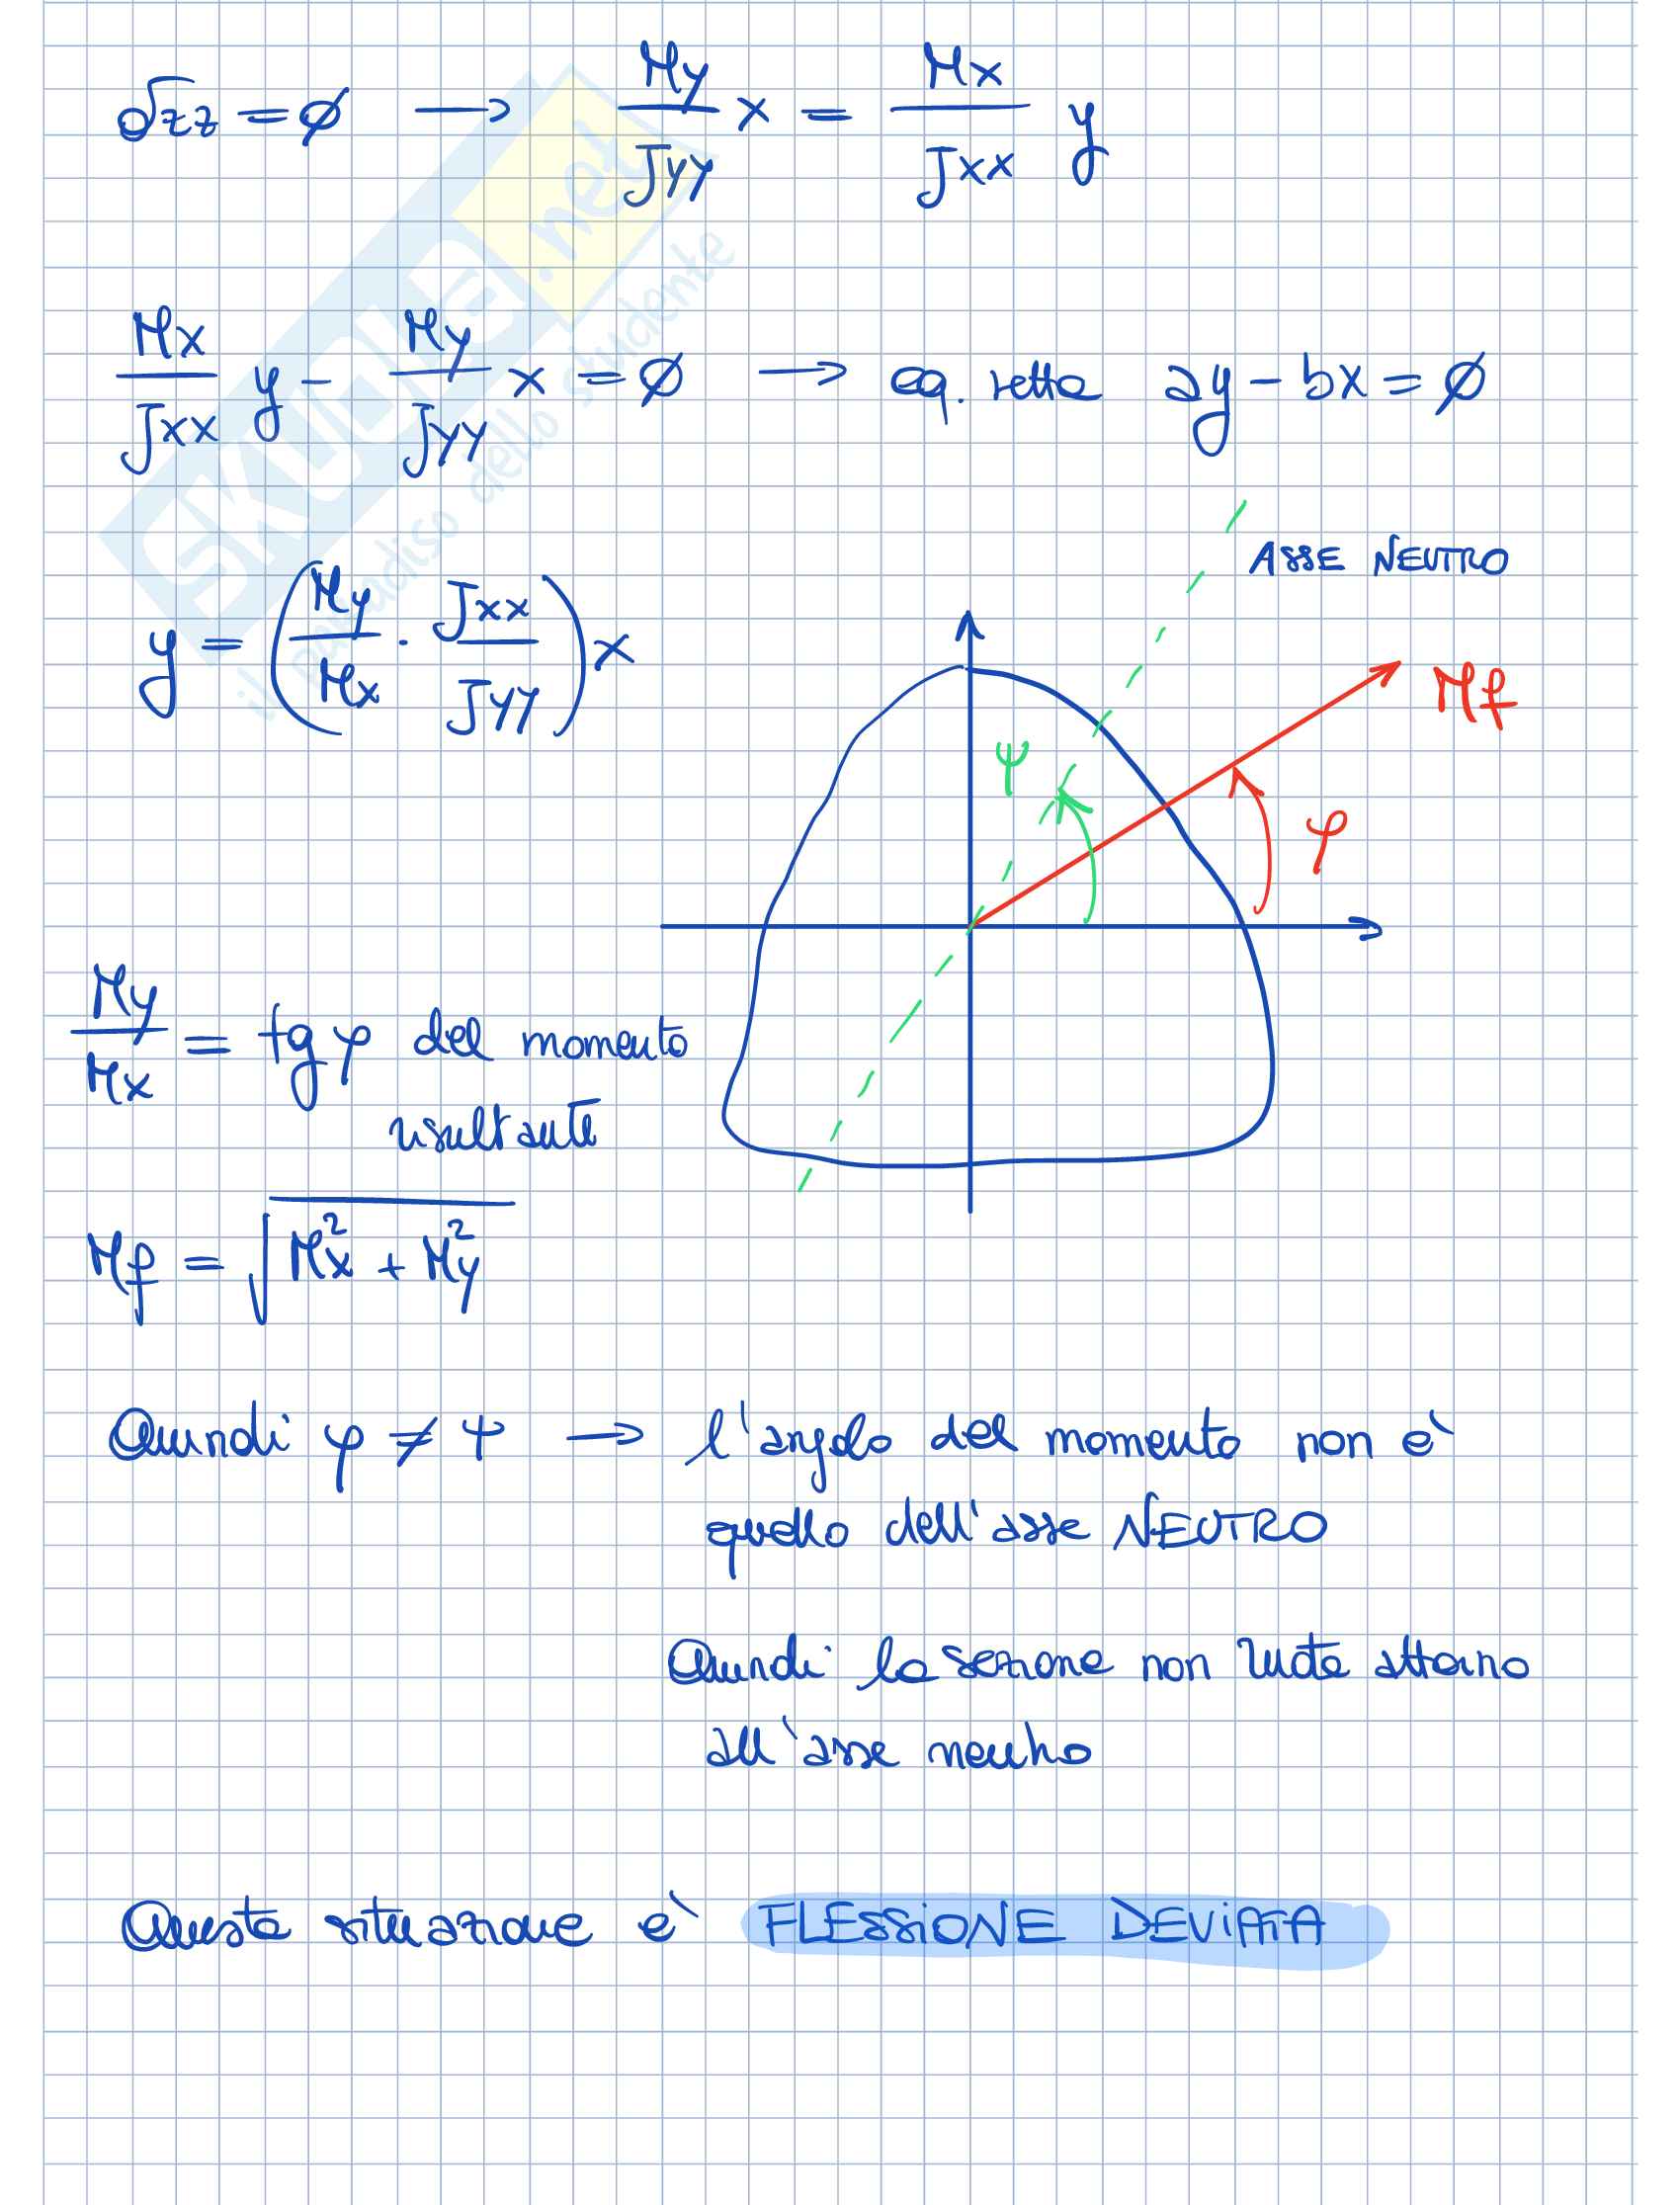 σzz = ∅ → My/Jyy x = Mx/Jxx y
Mx/Jxx y - My/Jyy x = ∅ → eq. retta ay - bx = ∅
ASSE NEUTRO
y = (My/Mx · Jxx/Jyy) x
Mf
ψ
φ
My/Mx = tg φ del momento
risultante
Mf = √(Mx² + My²)
Quindi φ ≠ ψ → l'angolo del momento non è
quello dell'asse NEUTRO
Quindi la sezione non ruota attorno
all'asse neutro
Questa situazione è FLESSIONE DEVIATA
SKUOLA.net
il paradiso dello studente